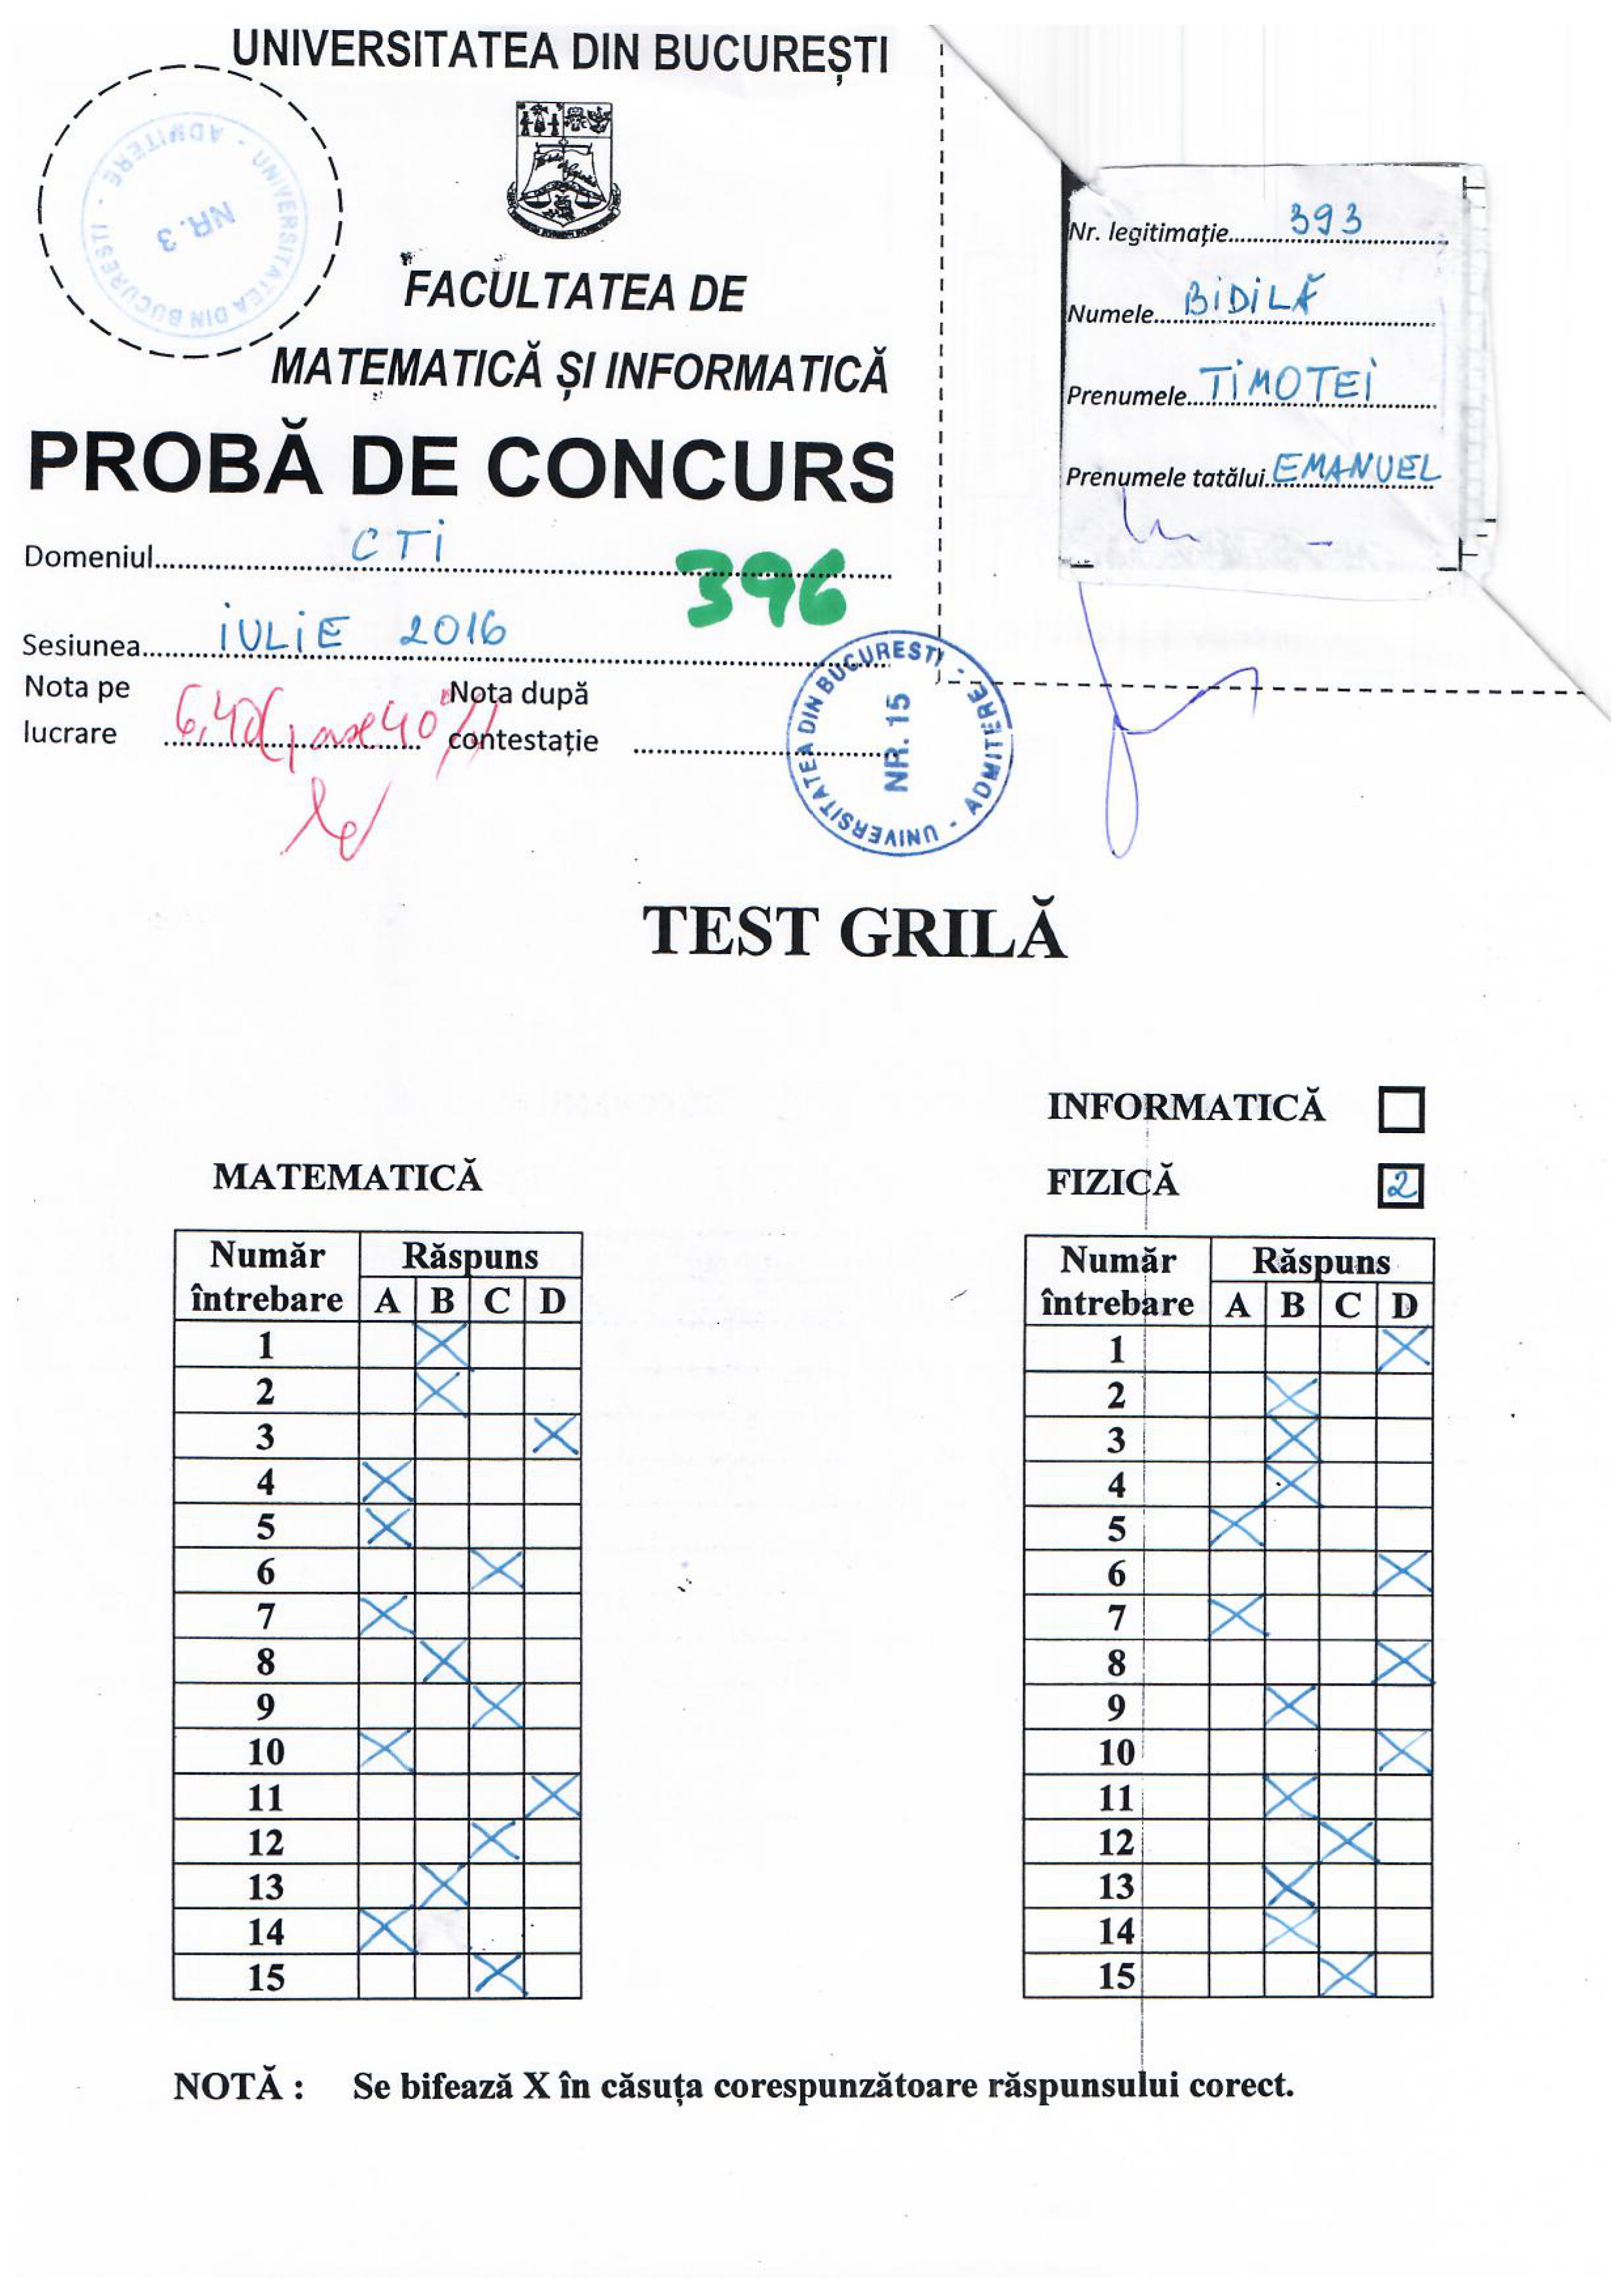 UNIVERSITATEA DIN BUCUREȘTI
UNIVERSITATEA DIN BUCURESTI - ADMITERE -
NR. 3
FACULTATEA DE
MATEMATICĂ ȘI INFORMATICĂ
PROBĂ DE CONCURS
Domeniul CTI
396
Sesiunea IULIE 2016
Nota pe lucrare 6,40 (șase 40%)
Nota după contestație
UNIVERSITATEA DIN BUCURESTI - ADMITERE -
NR. 15
Nr. legitimație 393
Numele BIDILĂ
Prenumele TIMOTEI
Prenumele tatălui EMANUEL
TEST GRILĂ
MATEMATICĂ
Număr întrebare Răspuns
A B C D
1 X
2 X
3 X
4 X
5 X
6 X
7 X
8 X
9 X
10 X
11 X
12 X
13 X
14 X
15 X
INFORMATICĂ
FIZICĂ 2
Număr întrebare Răspuns
A B C D
1 X
2 X
3 X
4 X
5 X
6 X
7 X
8 X
9 X
10 X
11 X
12 X
13 X
14 X
15 X
NOTĂ : Se bifează X în căsuța corespunzătoare răspunsului corect.